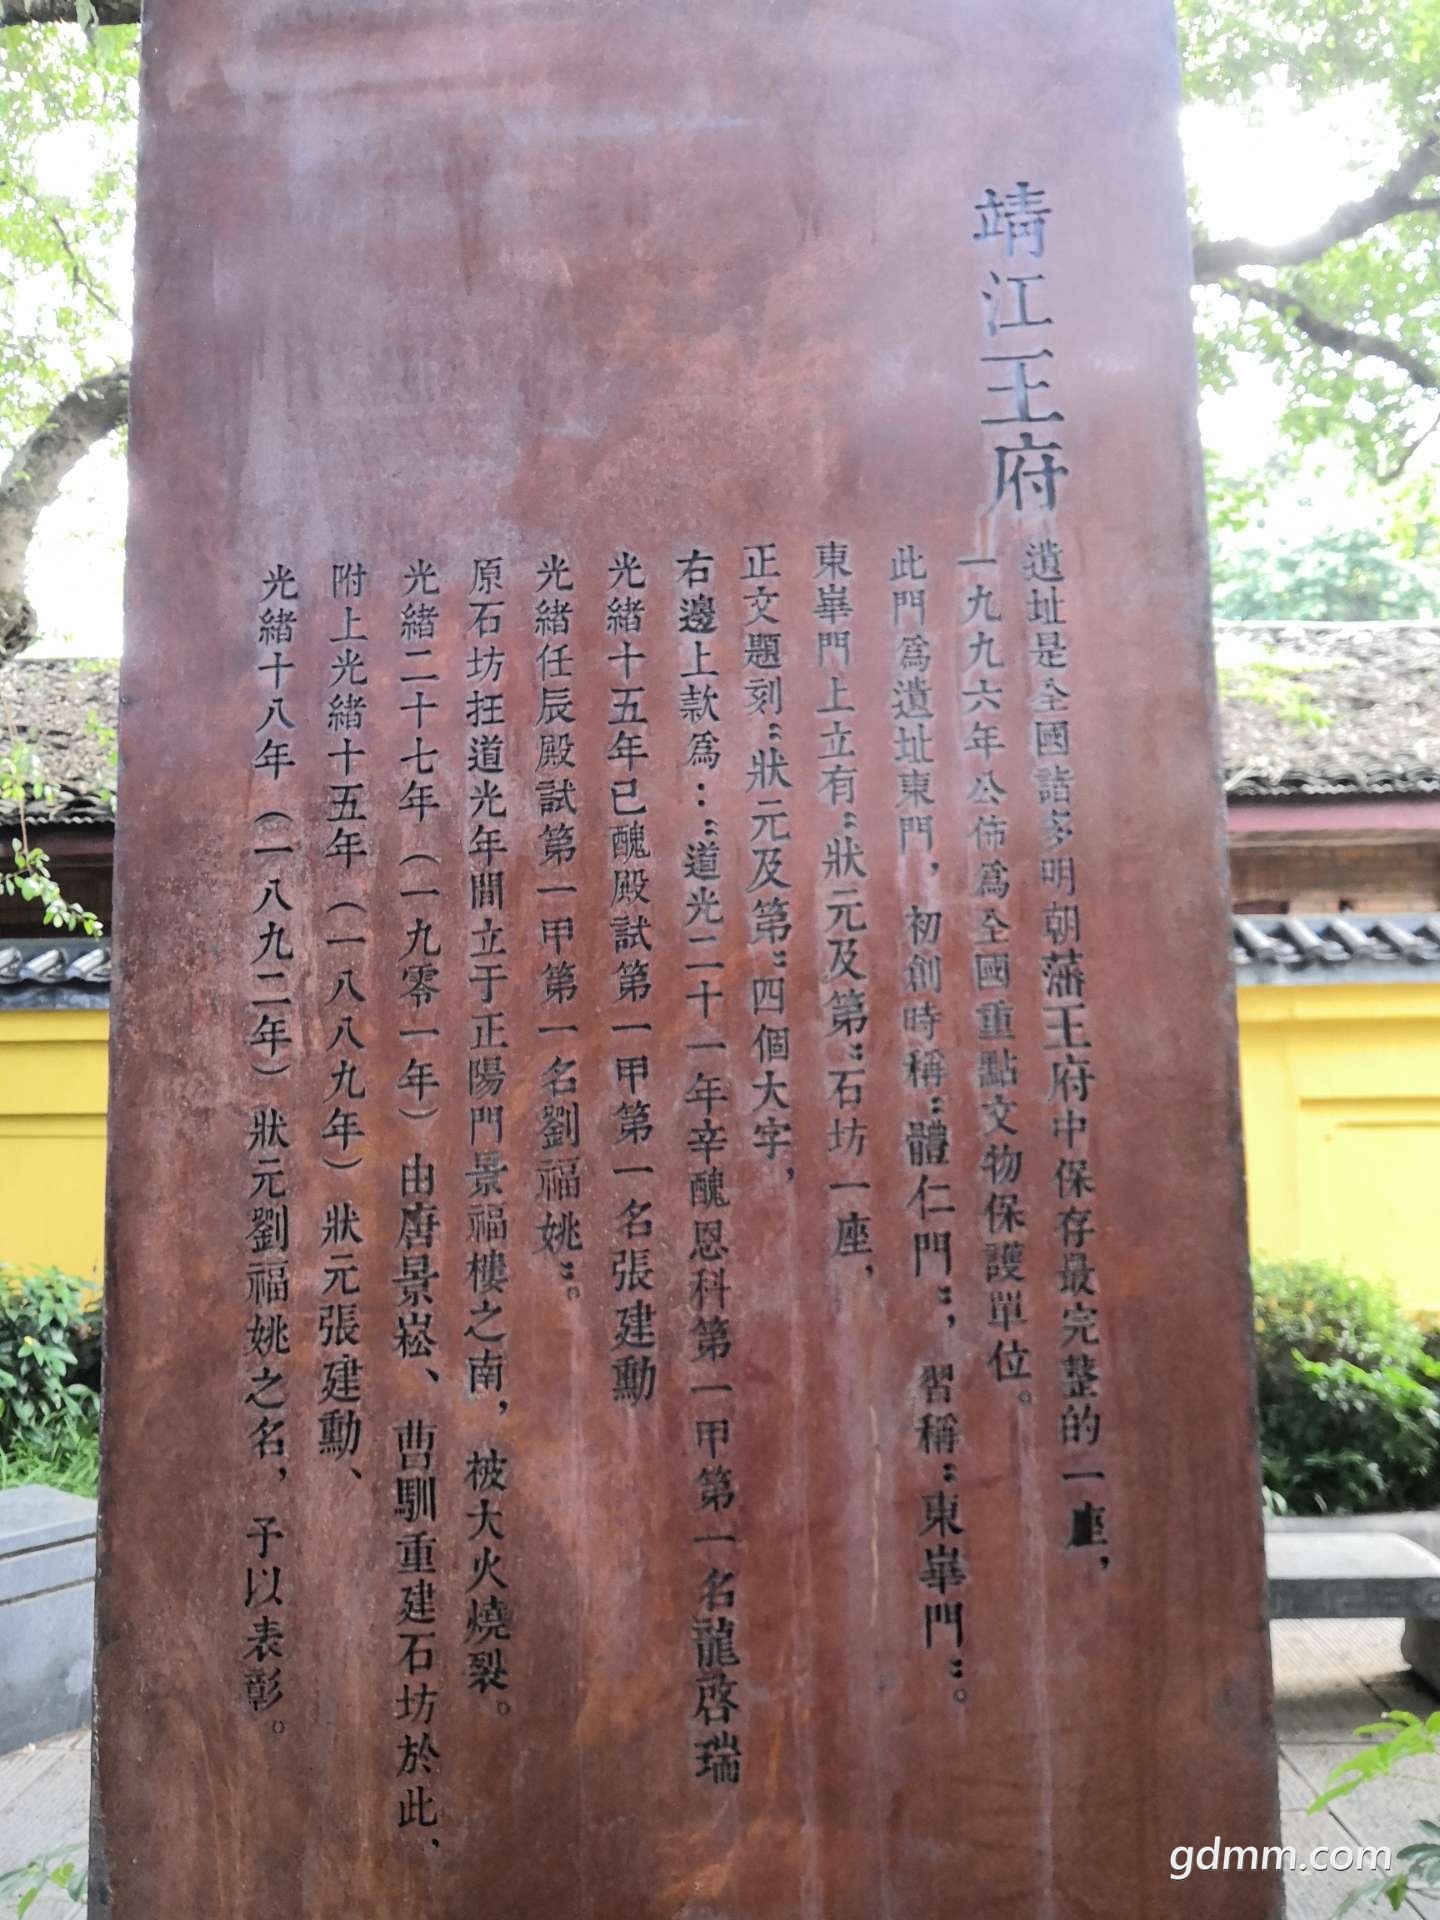 靖江王府
遺址是全國諸多明朝藩王府中保存最完整的一座，
一九九六年公佈爲全國重點文物保護單位。
此門爲遺址東門，初創時稱：體仁門：，習稱：東華門：。
東華門上立有：狀元及第：石坊一座，
正文題刻：狀元及第：四個大字，
右邊上款爲：：道光二十一年辛醜恩科第一甲第一名龍啓瑞
光緒十五年已醜殿試第一甲第一名張建勳
光緒任辰殿試第一甲第一名劉福姚：。
原石坊在道光年間立于正陽門景福樓之南，被大火燒裂。
光緒二十七年（一九零一年）由唐景崧、曹馴重建石坊於此，
附上光緒十五年（一八八九年）狀元張建勳、
光緒十八年（一八九二年）狀元劉福姚之名，予以表彰。
gdmm.com